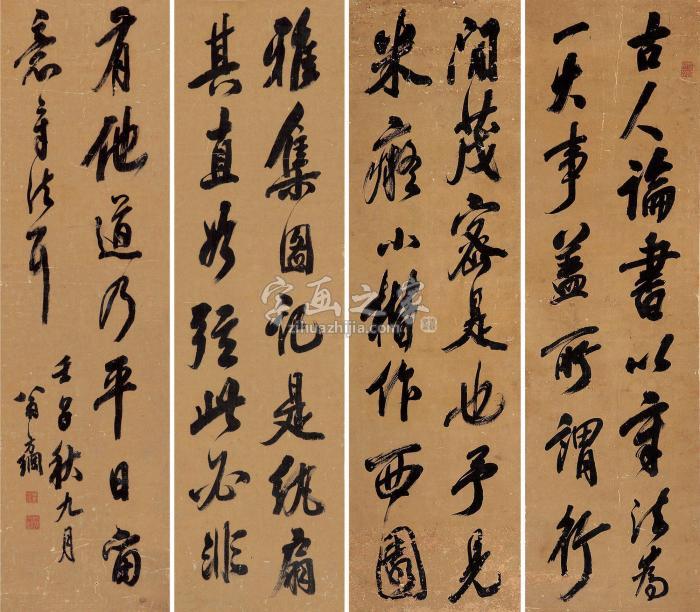 古人論書以章法為
一大事蓋所謂行
間茂密是也予見
米癡小楷作西園
雅集圖記是紈扇
其直如弦此必非
有他道乃平日留
意章法耳
壬秋九月
翁方綱
字画之家
zihuazhijia.com